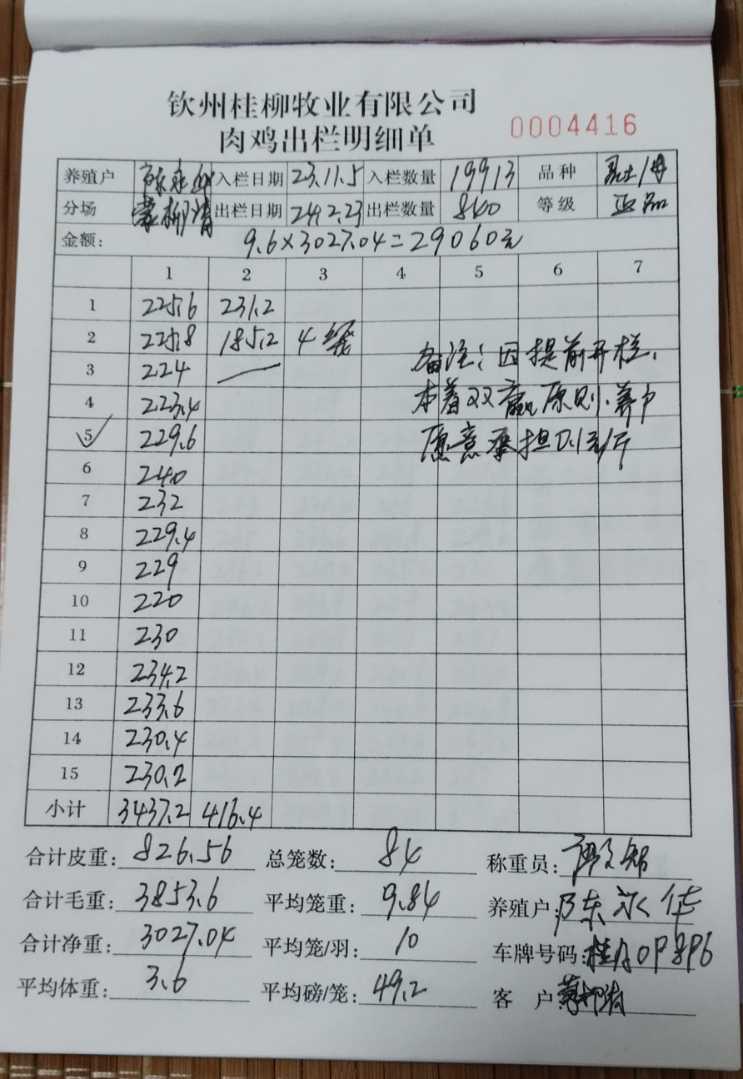 钦州桂柳牧业有限公司
肉鸡出栏明细单 0004416
养殖户 入栏日期 23.11.5 入栏数量 19913 品种
分场 出栏日期 24.2.23 出栏数量 840 等级 正品
金额: 9.6×3027.04=29060元
1 2 3 4 5 6 7
1 225.6 231.2
2 225.8 185.2 4笼
3 224
4 223.4
5 229.6
6 240
7 232
8 229.4
9 229
10 220
11 230
12 234.2
13 233.6
14 230.4
15 230.2
备注:因提前开栏,
本着双赢原则.养户
愿意承担0.1元/斤
小计 3437.2 416.4
合计皮重: 826.56 总笼数: 84 称重员:
合计毛重: 3853.6 平均笼重: 9.84 养殖户:
合计净重: 3027.04 平均笼/羽: 10 车牌号码:
平均体重: 3.6 平均磅/笼: 49.2 客户